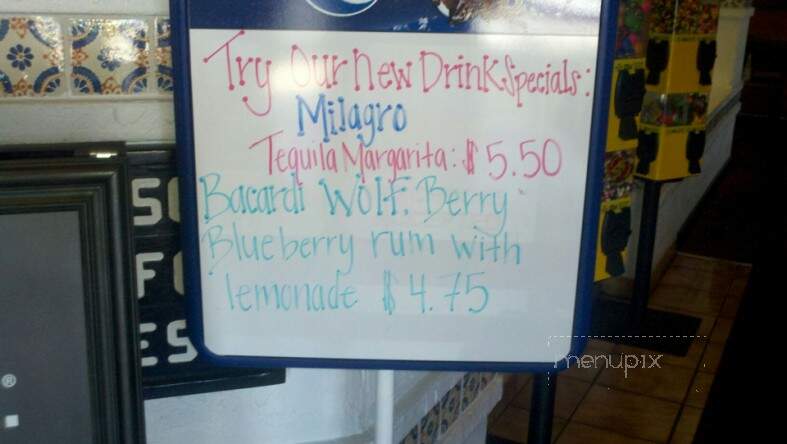 Try Our New Drink Specials:
Milagro
Tequila Margarita: $5.50
Bacardi Wolf Berry
Blueberry rum with
lemonade $4.75
menupix